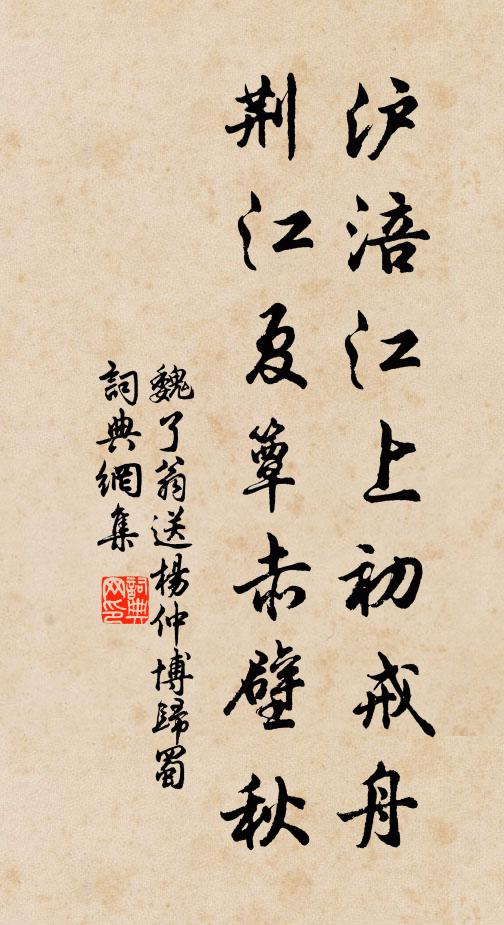 沪涪江上初戒舟
荆江夏簟赤壁秋
魏了翁送楊仲博歸蜀
詞典網集
詞典网印